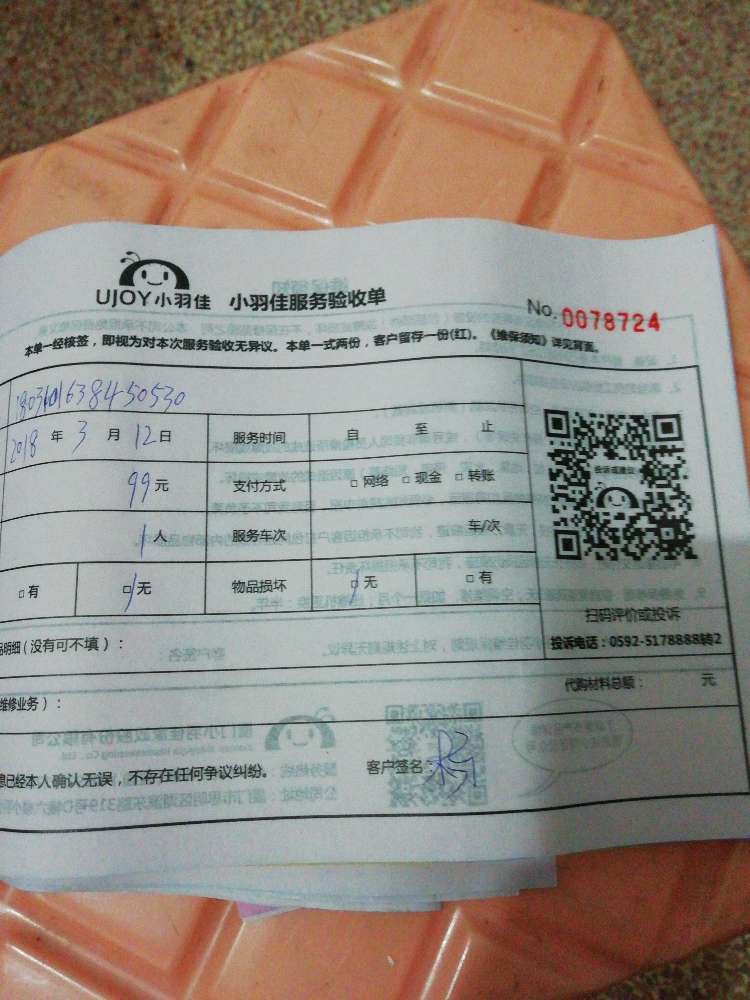 UJOY小羽佳 小羽佳服务验收单
No. 0078724
本单一经核签，即视为对本次服务验收无异议。本单一式两份，客户留存一份(红)。《维保须知》详见背面。
2018 年 3 月 12 日 服务时间 自 至 止
99 元 支付方式 □ 网络 □ 现金 □ 转账
1 人 服务车次 车/次
□ 有 □ 无 物品损坏 □ 无 □ 有
投诉或建议
扫码评价或投诉
投诉电话：0592-5178888转2
明细（没有可不填）：
代购材料总额： 元
维修业务）：
已经本人确认无误，不存在任何争议纠纷。 客户签名：